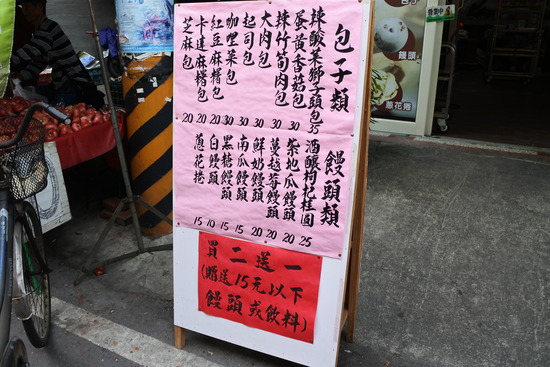 包子類
辣酸菜獅子頭包 35
蛋黃香菇包 30
辣竹筍肉包 30
大肉包 30
起司包 30
咖哩菜包 30
紅豆麻糬包 20
卡達麻糬包 20
芝麻包 20
饅頭類
酒釀枸杞桂圓 25
紫地瓜饅頭 20
蔓越莓饅頭 20
鮮奶饅頭 20
南瓜饅頭 15
黑糖饅頭 15
白饅頭 10
蔥花捲 15
買二送一
(贈送15元以下
饅頭或飲料)
饅頭
蔥花捲